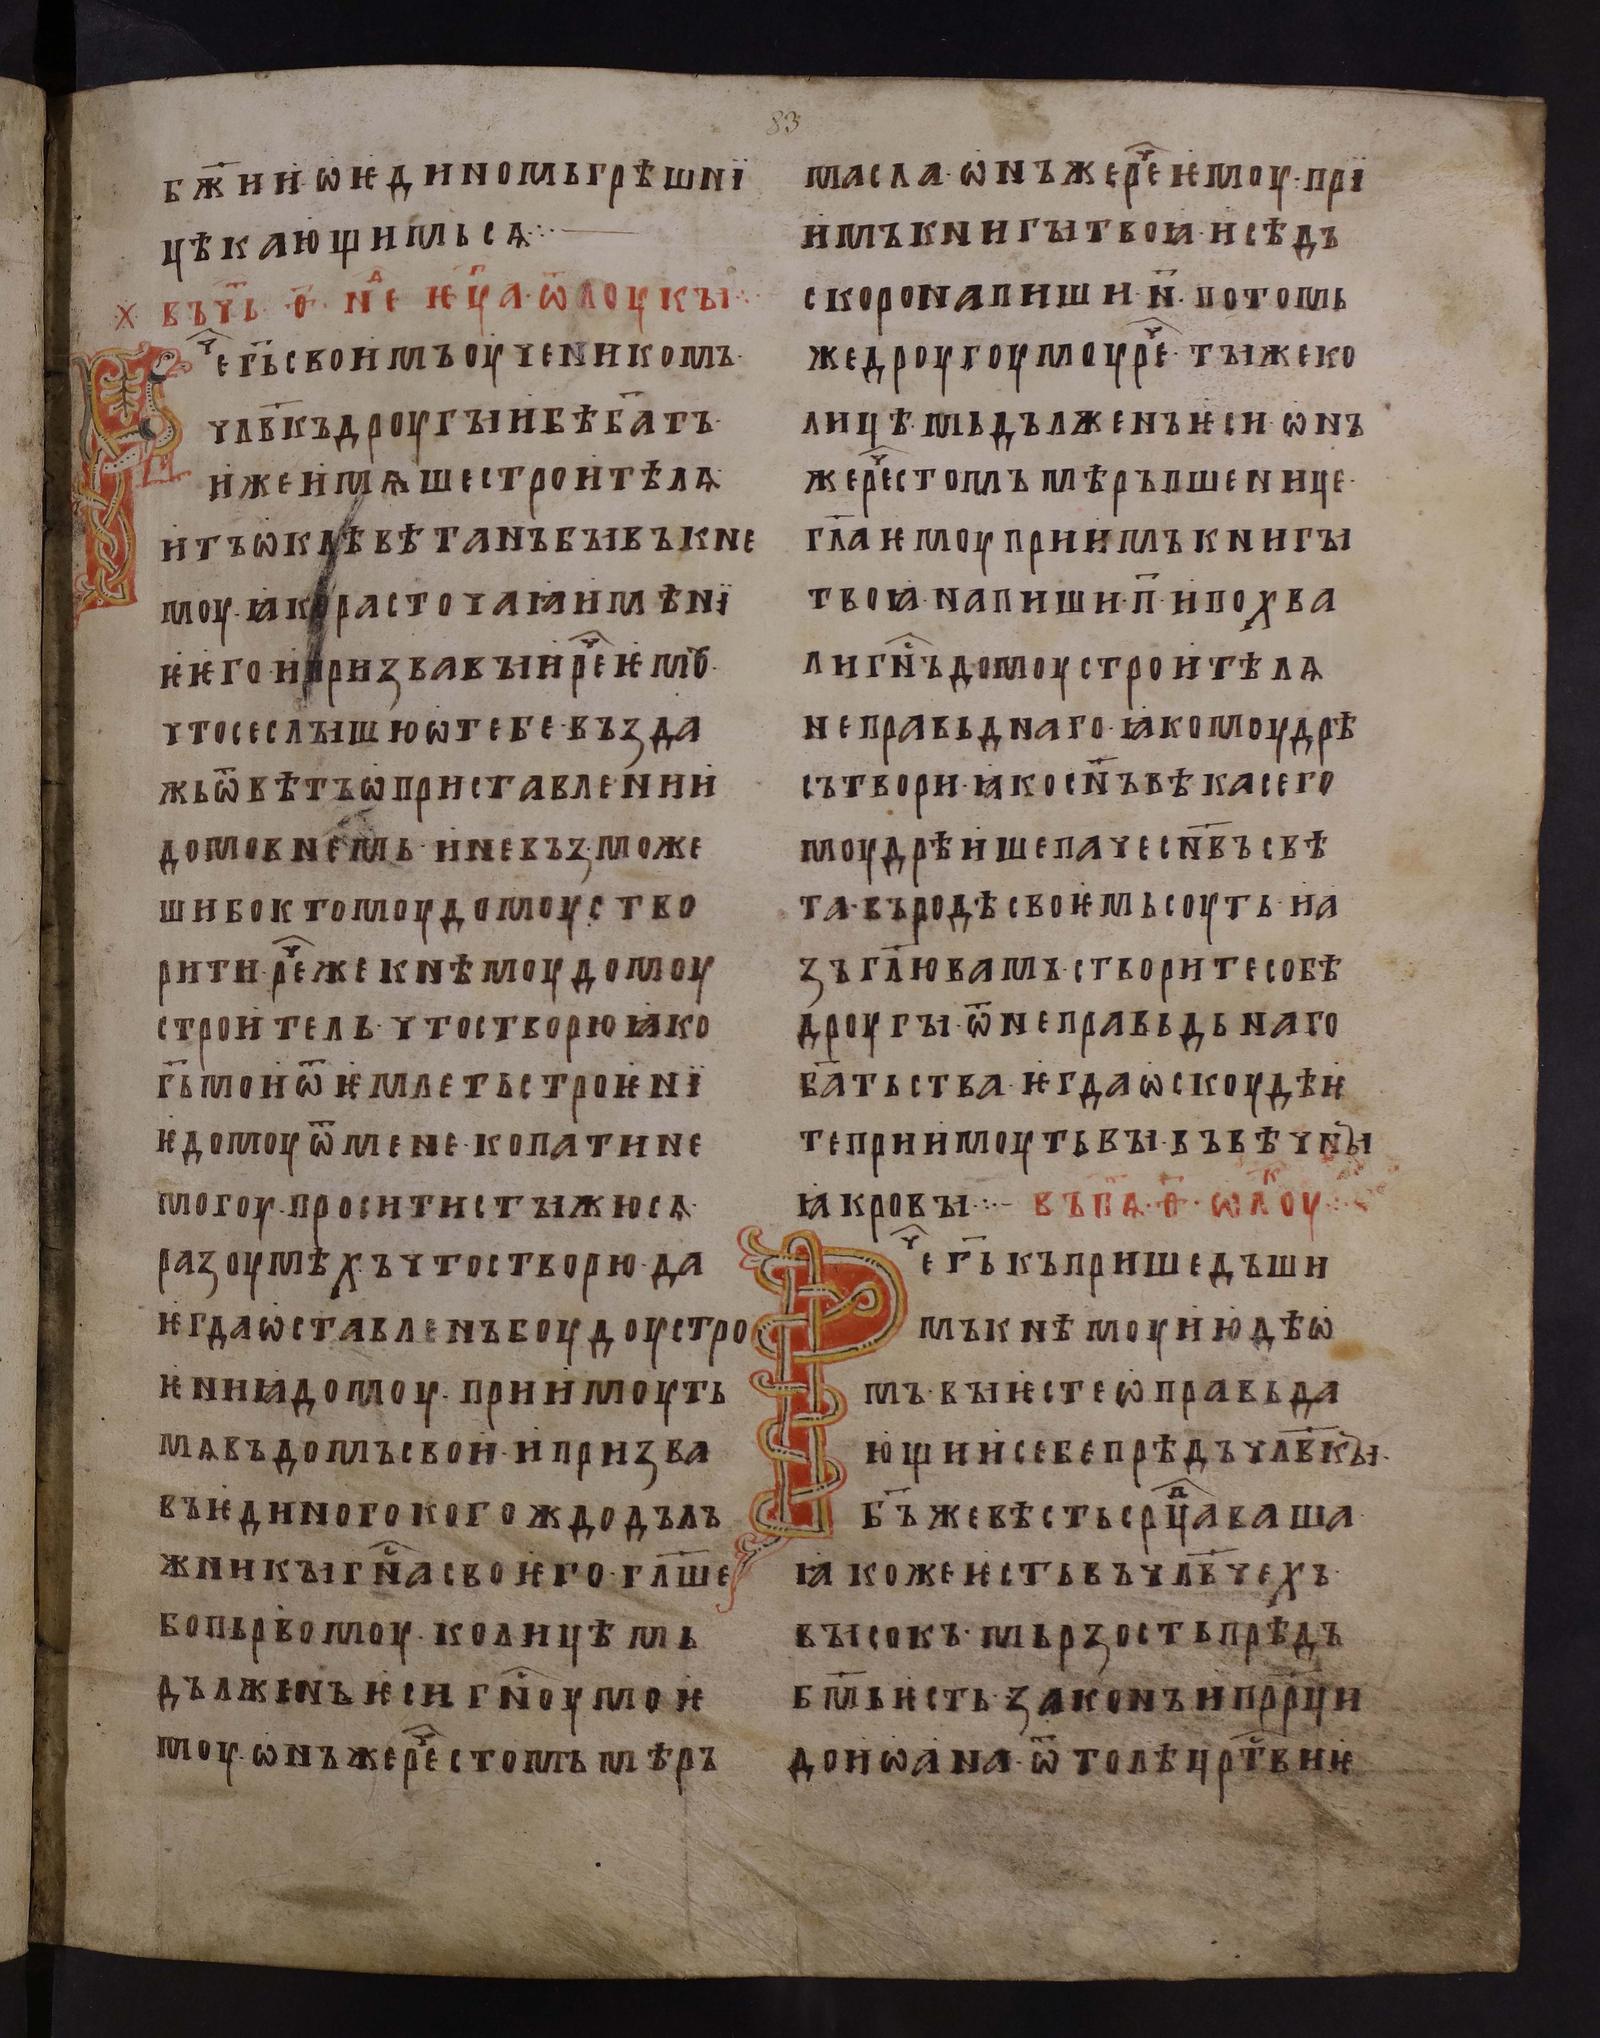 83
бж҃ии ѡ ѥдиномь грѣшнї
цѣ кающимьсѧ ⁘ —
х въ чт҃ь · ѳ҃ · нⷣе ѥⷢ҇ца · ѿ лоукꙑ ⁘
Рⷱ҇е г҃ь своимъ оученикомъ ·
чл҃вкъ дроугꙑи бѣ б҃атъ ·
иже имѧше строитѣлѧ
и тъ ѡклѣвѣтанъ бꙑвъ к не
моу · ꙗко расточаꙗ имѣнї
ѥ ѥго и призвавꙑи рⷱ҇е ѥмꙋ ·
что се слꙑшю ѡ тебе · възда
жь ѿвѣтъ ѡ приставлении
домовнемь · и не възможе
ши бо к томоу домоу ство
рити · рⷱ҇е же к нѣмоу домоу
строитель · что створю ꙗко
г҃ь мои ѿѥмлеть строѥнї
ѥ домоу ѿ мене · копати не
могоу · просити стꙑжюсѧ ·
разоумѣхъ что створю · да
ѥгда ѡставленъ боудоу стро
ѥниꙗ домоу · приимоуть
мѧ въ домъ свои · и призва
въ ѥдиного когождо дълъ
жникꙑ гⷭ҇на своѥго · гл҃ше
бо пьрвомоу · колицѣмь
дълженъ ѥси гⷭ҇ноу моѥ
моу · ѡнъ же рⷱ҇е стомь мѣръ
масла · ѡнъ же рⷱ҇е ѥмоу · прї
имъ книгꙑ твоꙗ · и сѣдъ
скоро напиши · н҃ · потомь
же дроугоумоу рⷱ҇е · тꙑ же ко
лицѣмь дълженъ ѥси · ѡнъ
же рⷱ҇е стомъ мѣръ пшенице ·
гл҃а ѥмоу приимъ книгꙑ
твоꙗ · напиши · п҃ · и похва
ли гⷭ҇нъ домоу строитѣлѧ
неправьднаго · ꙗко моудрѣ
сътвори · ꙗко сн҃ъ вѣка сего
моудрѣише паче сн҃въ свѣ
та · въ родѣ своѥмь соуть · и а
зъ гл҃ю вамъ · створите собѣ
дроугꙑ · ѿ неправьдьнаго
б҃атьства · ѥгда ѡскоудѣѥ
те приимоуть вꙑ · въ вѣчнꙑ
ꙗ кровꙑ ⁘ – въ пѧⷦ҇ · ѳ҃ · ѡ лоу ⁘
Рⷱ҇е г҃ь къ пришедъши
мъ к нѣмоу июдѣѡ
мъ · вꙑ ѥсте ѡправьда
ющии себе прѣдъ чл҃вкꙑ ·
б҃ъ же вѣсть срⷣца ваша
ꙗкоже ѥсть въ чл҃вчехъ ·
вꙑсокъ · мьрзость прѣдъ
бм҃ь ѥсть · законъ и пр҃рци
до иѡана · ѿтолѣ црⷭ҇твиѥ